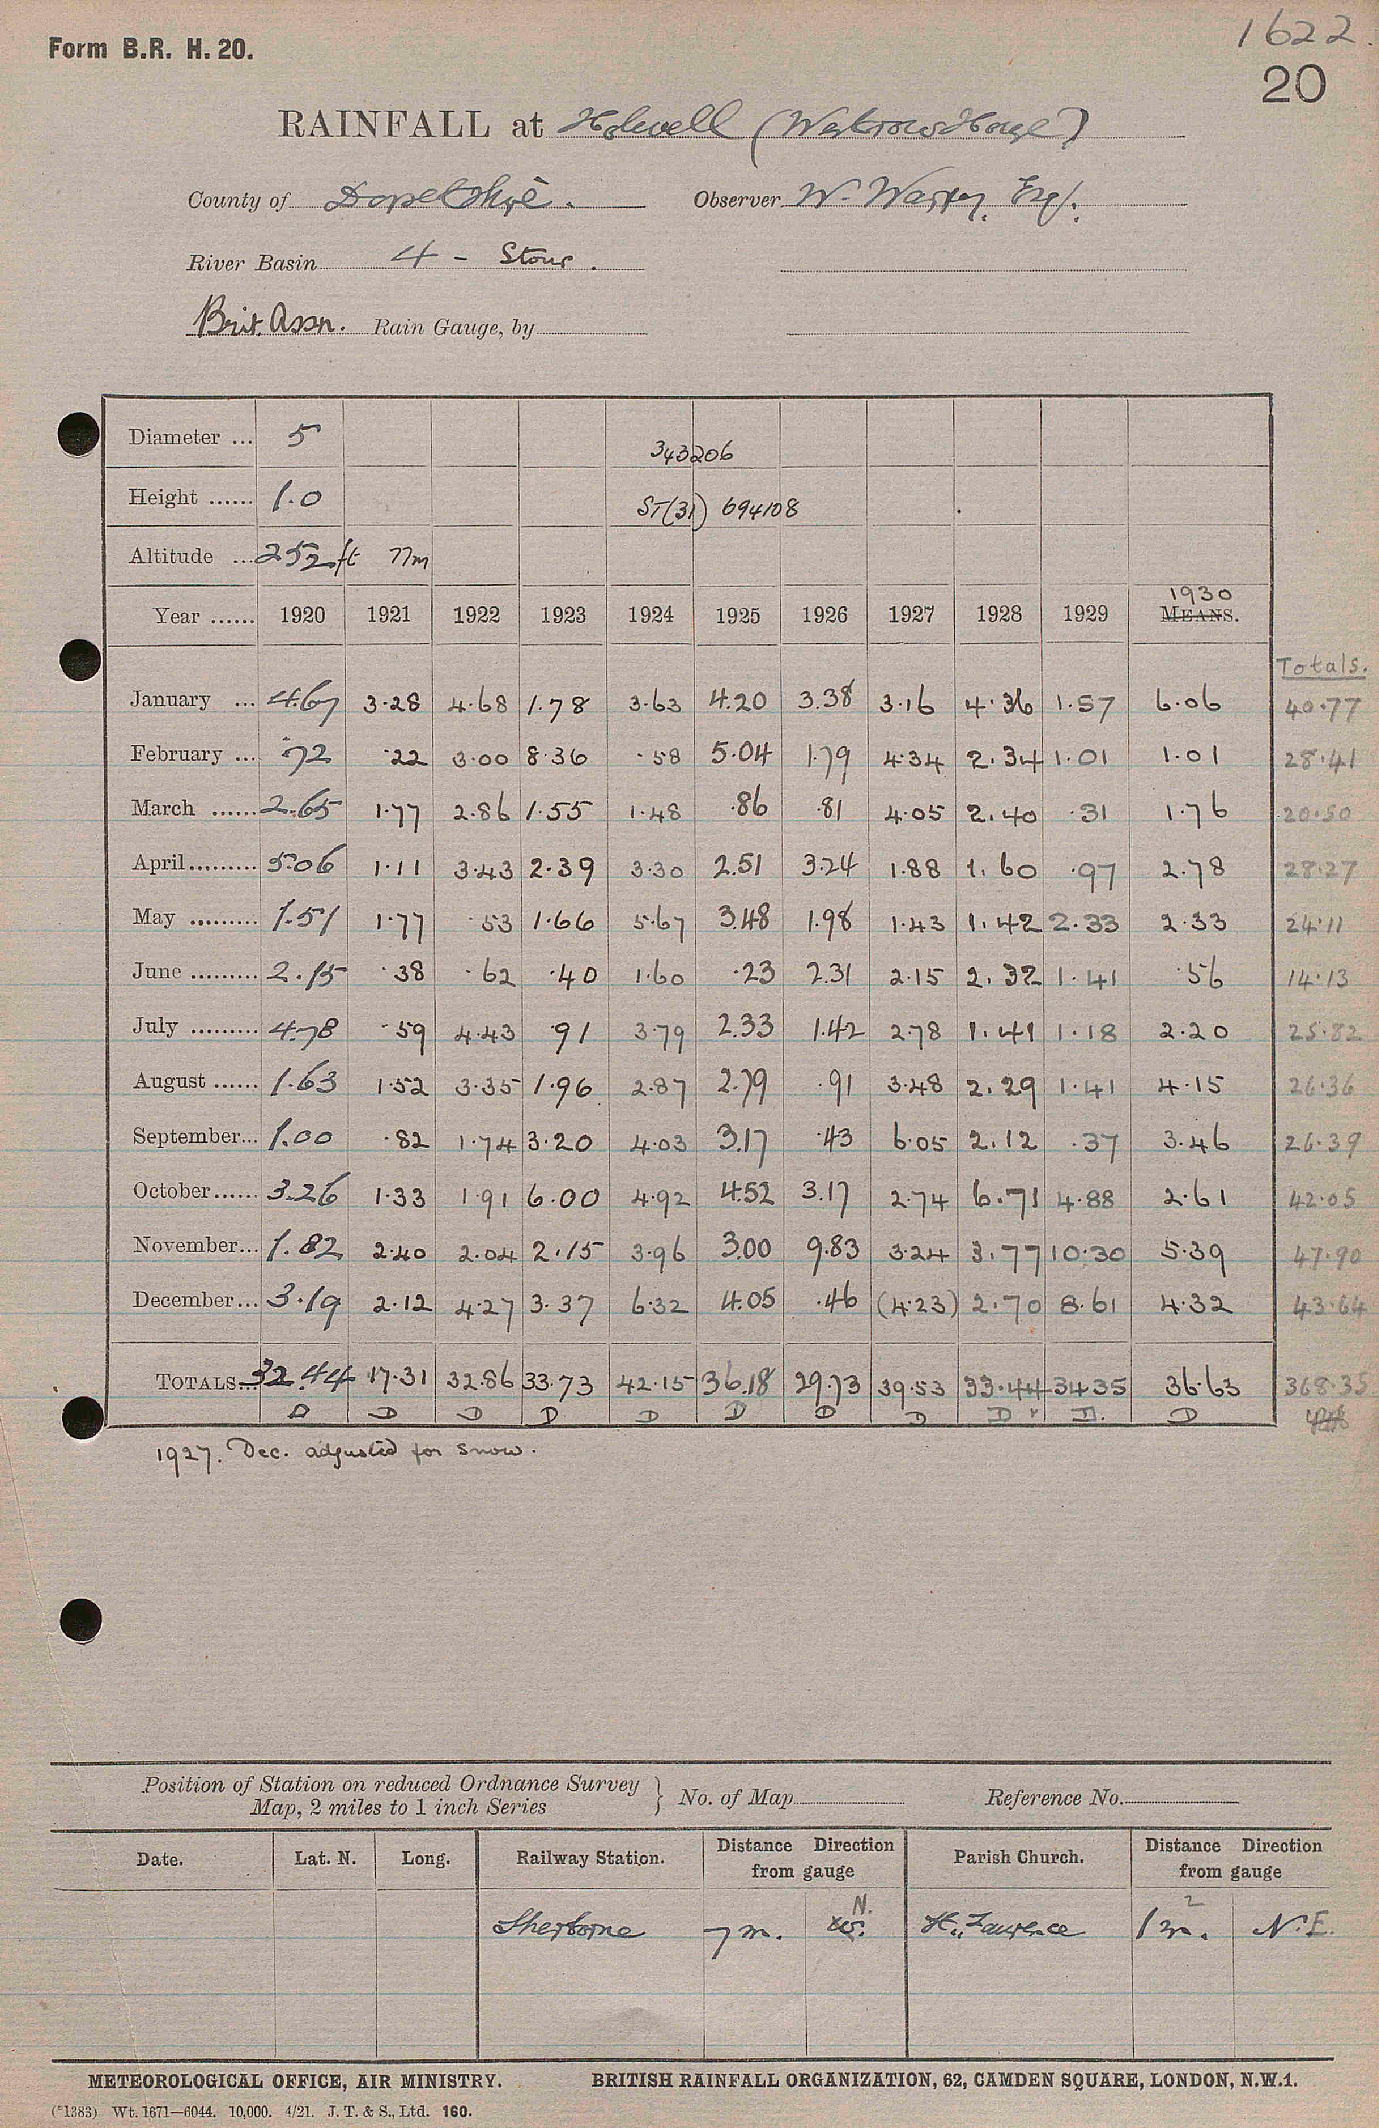 1622.
Form B.R. H. 20.
20
RAINFALL at Holwell (Westrow House)
County of Dorsetshire. Observer W. Warry, Esq.
River Basin 4 - Stour.
Brit. Assn. Rain Gauge, by
Diameter ... 5
343206
Height ...... 1.0
ST(31) 694108
Altitude ... 252 ft 77m
1930
Year ...... 1920 1921 1922 1923 1924 1925 1926 1927 1928 1929 MEANS.
Totals.
January ... 4.67 3.28 4.68 1.78 3.63 4.20 3.38 3.16 4.36 1.57 6.06 40.77
February ... .72 .22 3.00 8.36 .58 5.04 1.79 4.34 2.34 1.01 1.01 28.41
March ...... 2.65 1.77 2.86 1.55 1.48 .86 .81 4.05 2.40 .31 1.76 20.50
April ......... 5.06 1.11 3.43 2.39 3.30 2.51 3.24 1.88 1.60 .97 2.78 28.27
May ......... 1.51 1.77 .53 1.66 5.67 3.48 1.98 1.43 1.42 2.33 2.33 24.11
June ......... 2.15 .38 .62 .40 1.60 .23 2.31 2.15 2.32 1.41 .56 14.13
July ......... 4.78 .59 4.43 .91 3.79 2.33 1.42 2.78 1.41 1.18 2.20 25.82
August ...... 1.63 1.52 3.35 1.96 2.87 2.79 .91 3.48 2.29 1.41 4.15 26.36
September... 1.00 .82 1.74 3.20 4.03 3.17 .43 6.05 2.12 .37 3.46 26.39
October...... 3.26 1.33 1.91 6.00 4.92 4.52 3.17 2.74 6.71 4.88 2.61 42.05
November... 1.82 2.40 2.04 2.15 3.96 3.00 9.83 3.24 3.77 10.30 5.39 47.90
December... 3.19 2.12 4.27 3.37 6.32 4.05 .46 (4.23) 2.70 8.61 4.32 43.64
TOTALS... 32.44 17.31 32.86 33.73 42.15 36.18 29.73 39.53 33.44 34.35 36.63 368.35
D D D D D D D D D D. D
1927. Dec. adjusted for snow.
Position of Station on reduced Ordnance Survey
Map, 2 miles to 1 inch Series } No. of Map Reference No.
Date. Lat. N. Long. Railway Station. Distance Direction from gauge Parish Church. Distance Direction from gauge
N. 2
Sherborne 7 m. W. St. Laurence 1 m. N.E.
METEOROLOGICAL OFFICE, AIR MINISTRY. BRITISH RAINFALL ORGANIZATION, 62, CAMDEN SQUARE, LONDON, N.W.1.
(*1383) Wt. 1671—6044. 10,000. 4/21. J. T. & S., Ltd. 160.